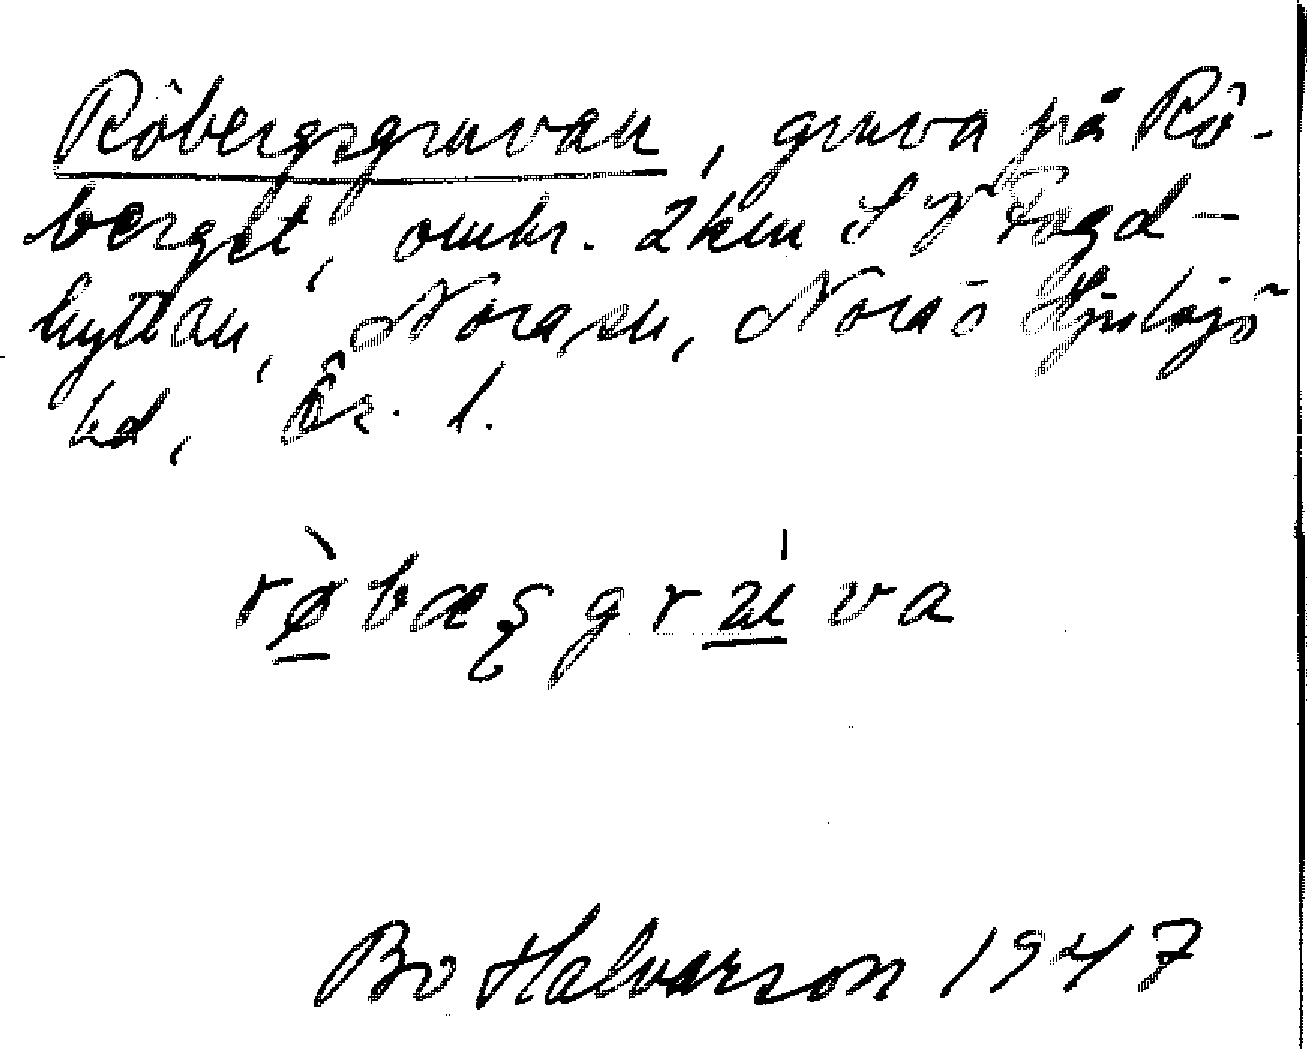 Röbergsgruvan, gruva på Rö-
berget, omkr. 2 km SV Fogd-
hyttan, Nora sn, Nora o Hjulsjö
bd, Ör. l.
rø̀bæșgru̍va
Bo Halvarson 1947